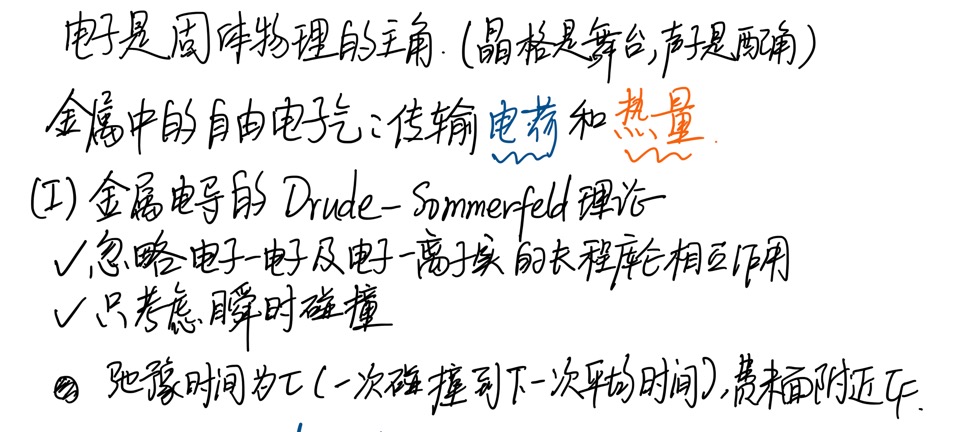 电子是固体物理的主角.(晶格是舞台,声子是配角)
金属中的自由电子气:传输电荷和热量.
(I)金属电导的Drude-Sommerfeld理论
✓忽略电子-电子及电子-离子实的长程库仑相互作用
✓只考虑瞬时碰撞
弛豫时间为τ(一次碰撞到下一次平均时间),费米面附近τF.